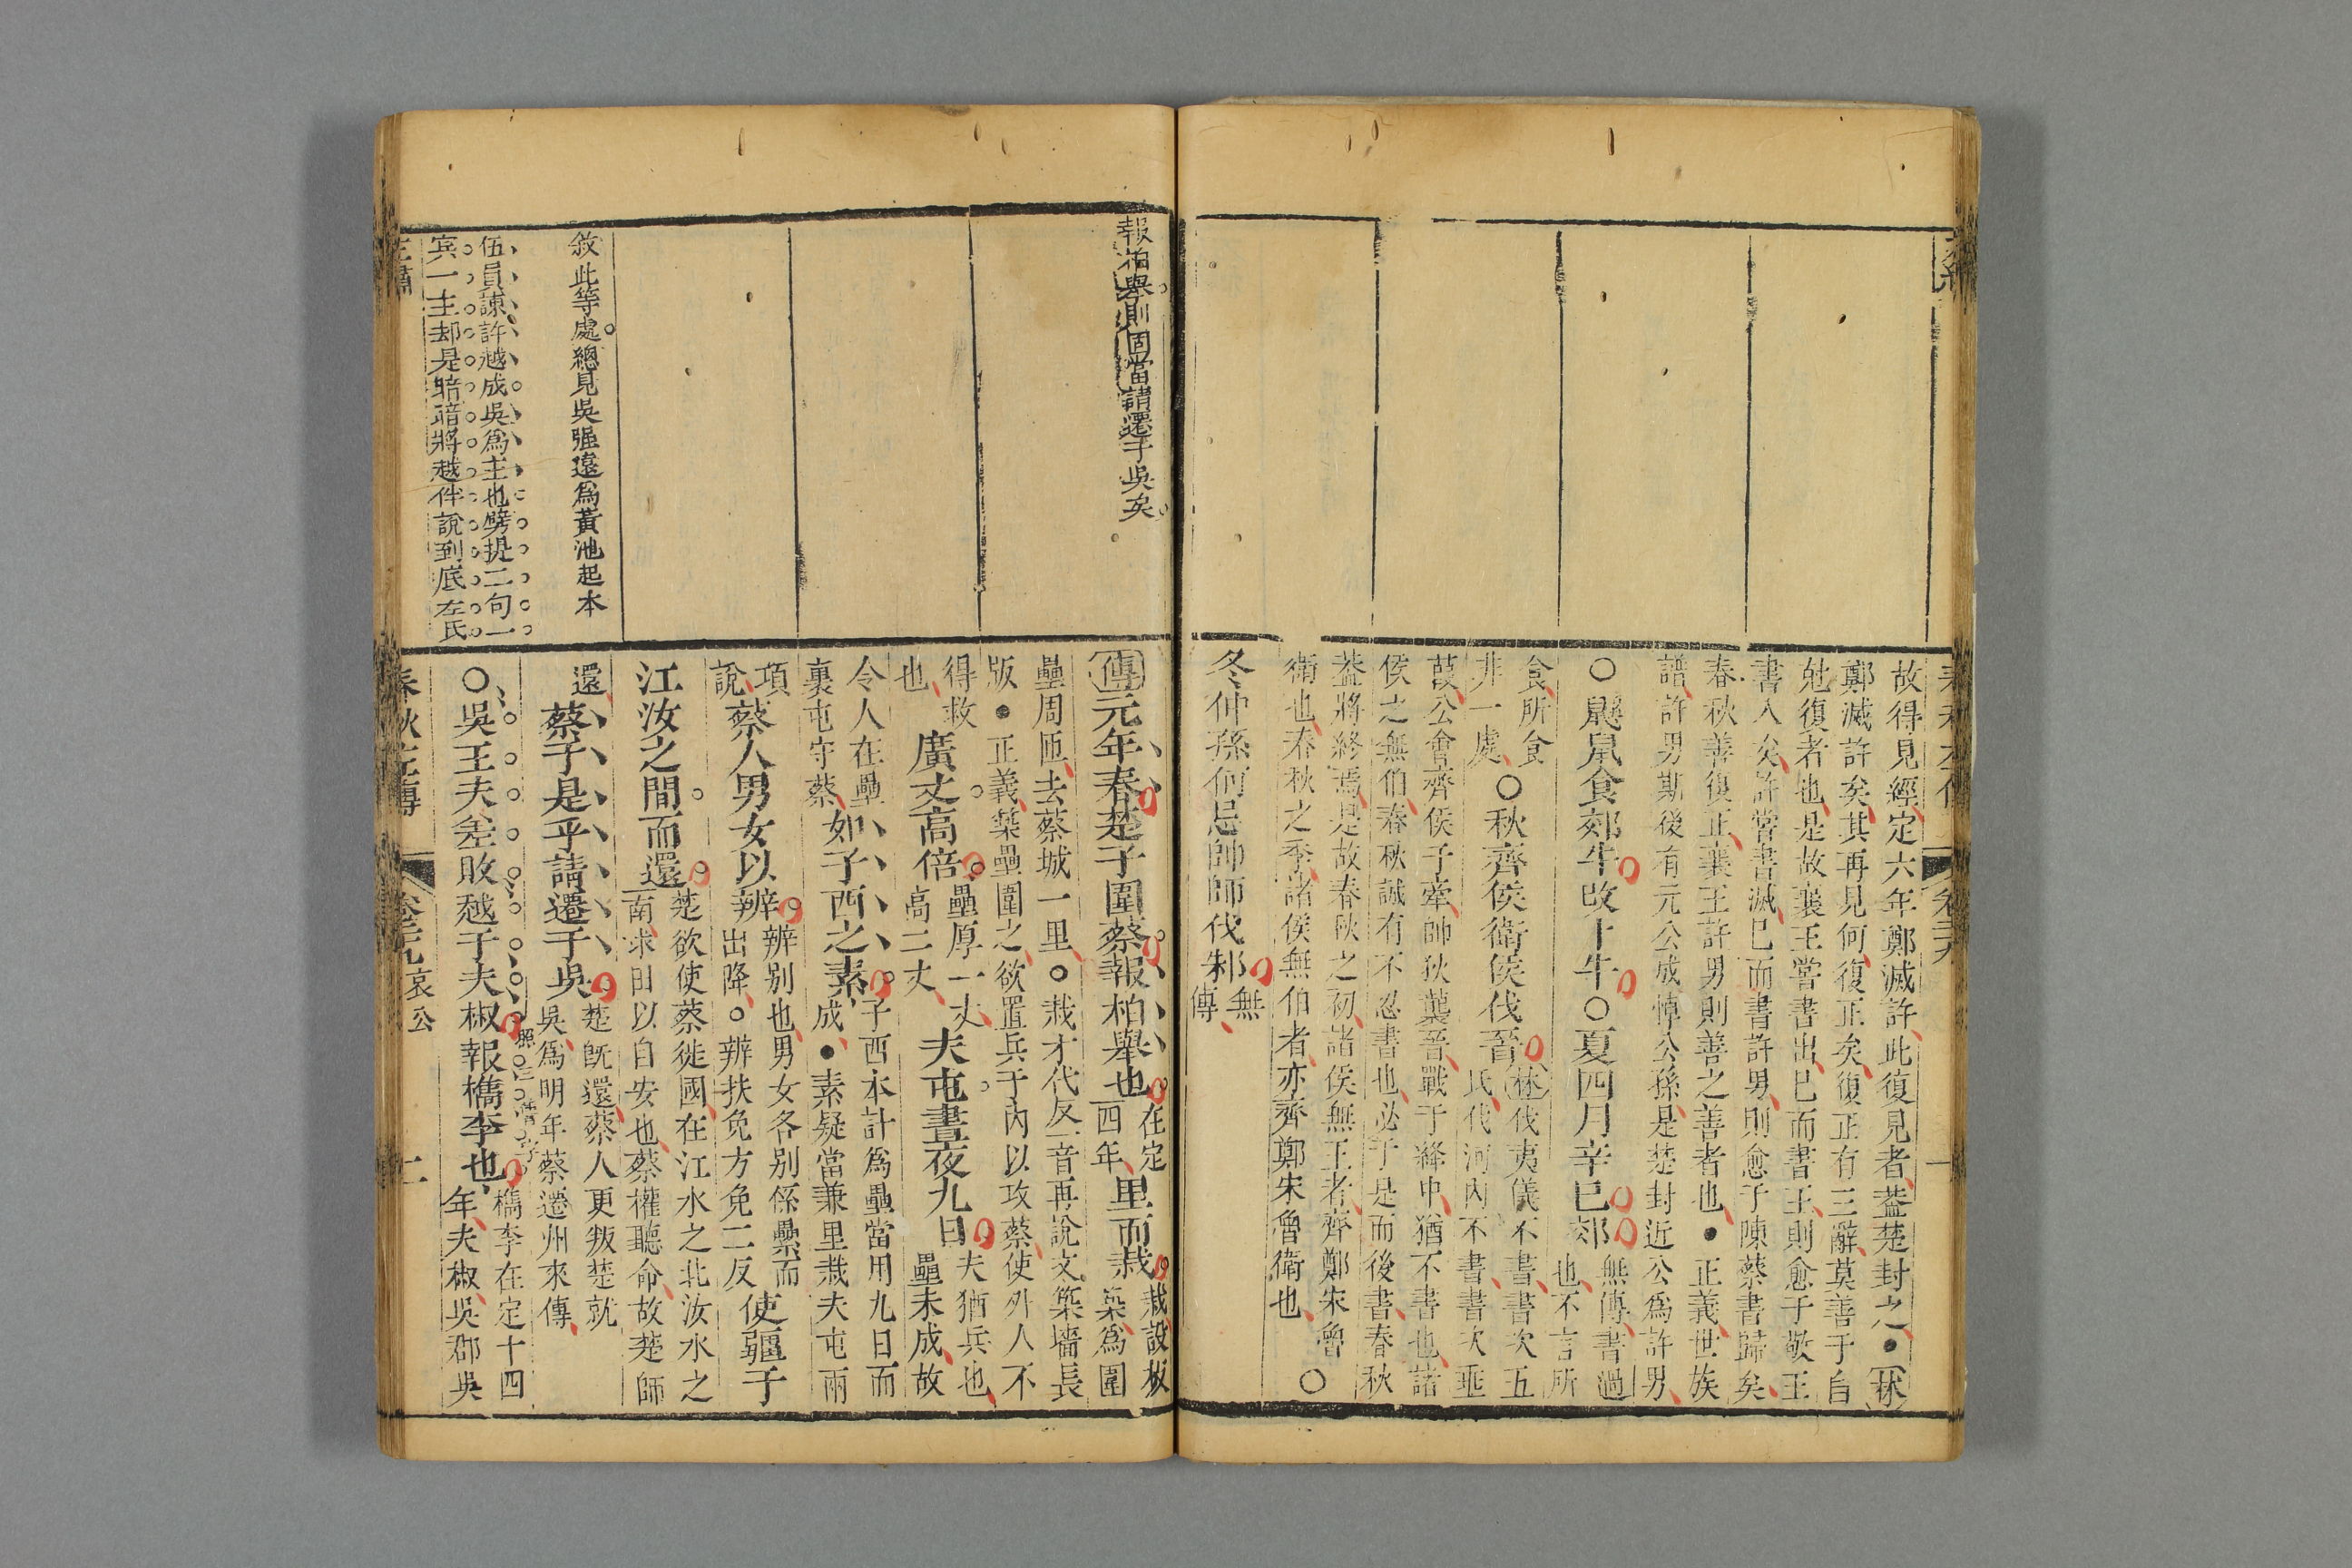 故得見經定六年鄭滅許此復見者蓋楚封之●林
鄭滅許矣其再見何復正矣復正有三辭莫善于自
尅復者也是故襄王嘗書出已而書王則愈于敬王
書入矣許嘗書滅已而書許男則愈于陳蔡書歸矣
春秋善復正襄王許男則善之善者也●正義世族
譜許男斯後有元公成悼公孫是楚封近公為許男
○鼷鼠食郊牛改卜牛○夏四月辛巳郊
無傳書過
也不言所
食所食
非一處
○秋齊侯衛侯伐晉
林伐夷儀不書書次五
氏伐河內不書書次垂
葭公會齊侯于牽帥狄襲晉戰于絳中猶不書也諸
侯之無伯春秋誠有不忍書也必于是而後書春秋
蓋將終焉是故春秋之初諸侯無王者齊鄭宋魯
衛也春秋之季諸侯無伯者亦齊鄭宋魯衛也
○
冬仲孫何忌帥師伐邾
無
傳
報柏舉則固當請遷于吳矣
敘此等處總見吳强遠為黃池起本
伍員諫許越成吳為主也劈提二句一
賓一主却是暗暗將越伴說到底左氏
傳元年春楚子圍蔡報柏舉也
在定
四年
里而栽
栽設板
築為圍
壘周匝去蔡城一里○栽才代反一音再說文築墻長
版●正義築壘圍之欲置兵于內以攻蔡使外人不
得救
也
廣丈高倍
壘厚一丈
高二丈
夫屯晝夜九日
夫猶兵也
壘未成故
令人在壘
裏屯守蔡
如子西之素
子西本計為壘當用九日而
成●素疑當兼里栽夫屯兩
項
說
蔡人男女以辨
辨别也男女各别係纍而
出降○辨扶免方免二反
使疆于
江汝之間而還
楚欲使蔡徙國在江水之北汝水之
南求田以自安也蔡權聽命故楚師
還
蔡于是乎請遷于吳
楚既還蔡人更叛楚就
吳為明年蔡遷州來傳
○吳王夫差敗越于夫椒報檇李也
檇李在定十四
年夫椒吳郡吳
春秋左傳
卷三十九哀公